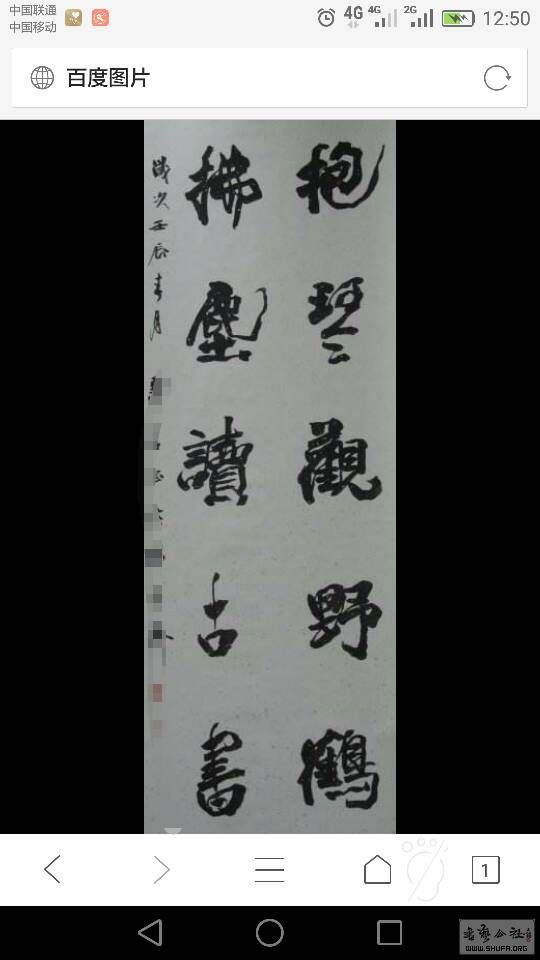 中国联通
中国移动
4G 4G 2G 12:50
百度图片
抱琴觀野鶴
拂塵讀古書
歲次壬辰春月
1
书艺公社
WWW.SHUFA.ORG